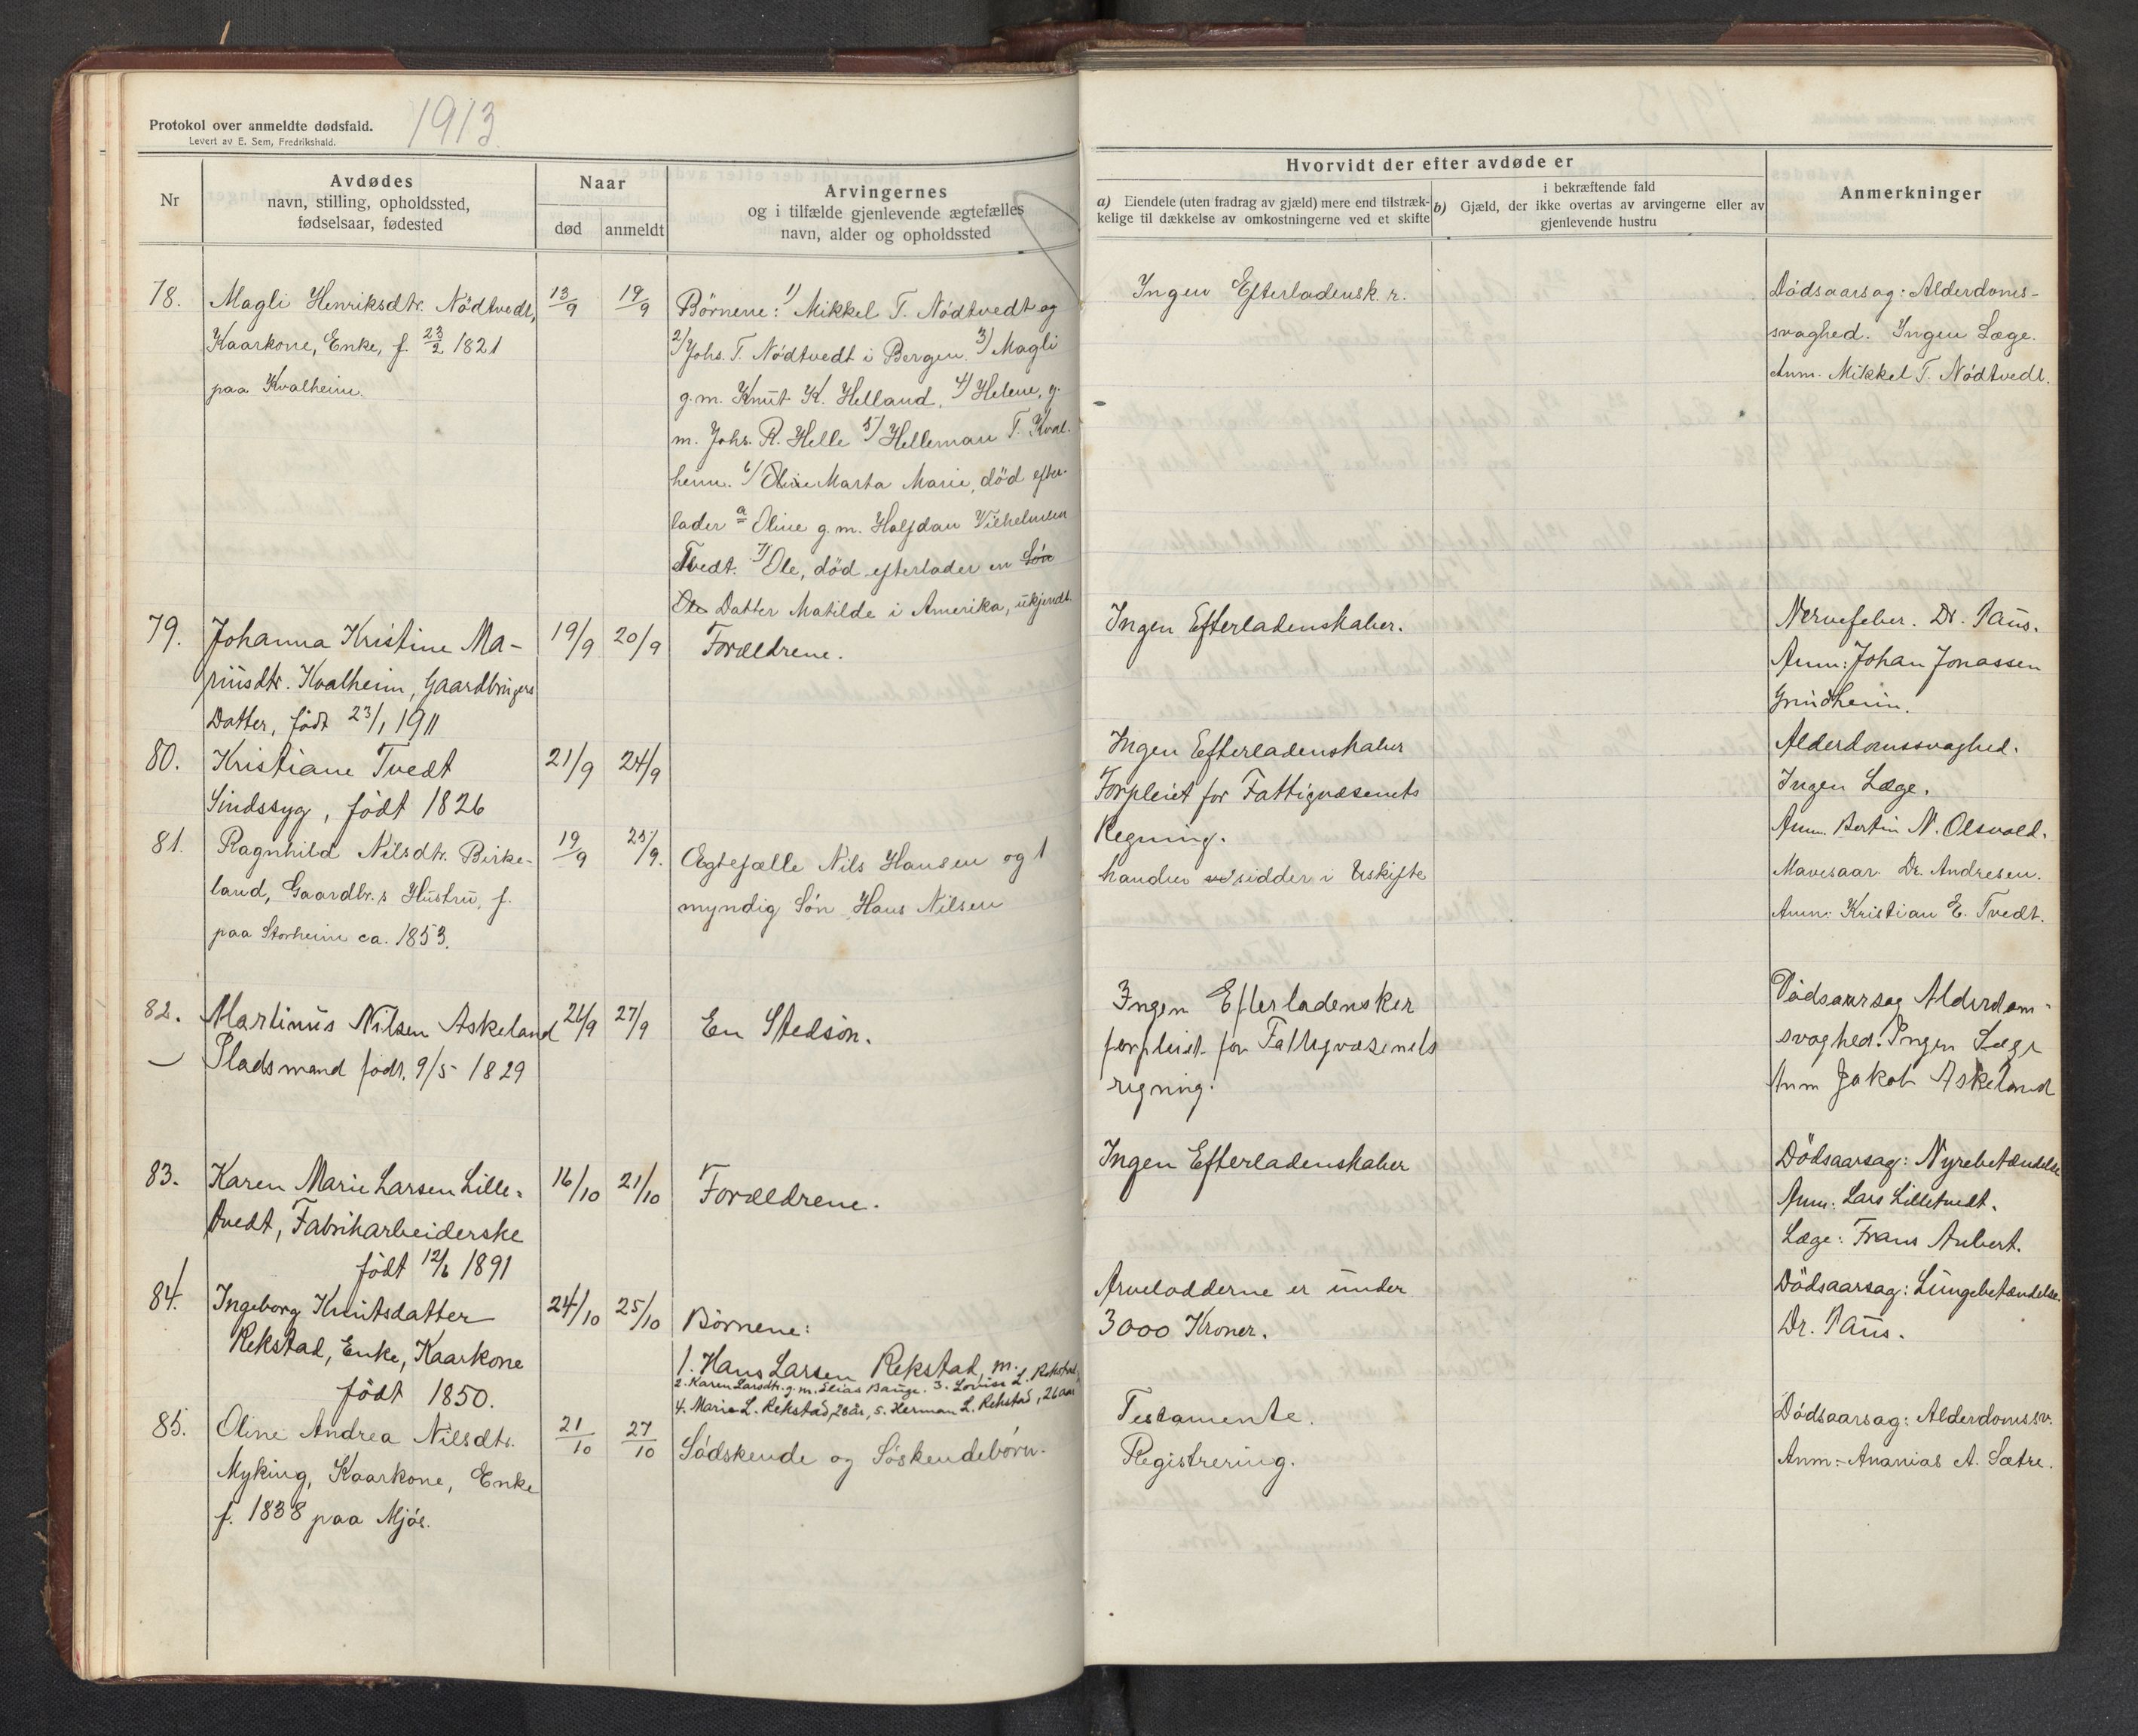 Protokol over anmeldte dødsfald.
Levert av E. Sem, Fredrikshald.
1913
Nr
Avdødes
navn, stilling, opholdssted,
fødselsaar, fødested
Naar
død
anmeldt
Arvingernes
og i tilfælde gjenlevende ægtefælles
navn, alder og opholdssted
Hvorvidt der efter avdøde er
a) Eiendele (uten fradrag av gjæld) mere end tilstræk-
kelige til dækkelse av omkostningerne ved et skifte
i bekræftende fald
b) Gjæld, der ikke overtas av arvingerne eller av
gjenlevende hustru
Anmerkninger
78.
Magli Henriksdtr. Nödtvedt,
Kaarkone, Enke, f. 23/2 1821
paa Kvalheim.
13/9
19/9
Börnene: 1/ Mikkel T. Nödtvedt og
2/ Johs. T. Nödtvedt i Bergen. 3/ Magli
g.m. Knut K. Helland, 4/ Helene, g.
m. Johs. R. Helle 5/ Helleman T. Kval-
heim. 6/ Oline Marta Marie, död efter-
lader a Oline g.m. Halfdan Vilhelmsen
Tvedt. 7/ Ole, död efterlader en Sön
Ole Datter Matilde i Amerika, ukjendt.
Ingen Efterladensk.r.
Dödsaarsag: Alderdoms-
svaghed. Ingen Læge.
Anm. Mikkel T. Nödtvedt.
79.
Johanna Kristine Ma-
riusdtr. Kvalheim, Gaardbrugers
Datter, födt 23/1 1911
19/9
20/9
Forældrene.
Ingen Efterladenskaber.
Nervefeber. Dr. Paus.
Anm: Johan Jonassen
Grindheim.
80.
Kristiane Tvedt
Sindssyg, födt 1826
21/9
24/9
Ingen Efterladenskaber
Forpleiet for Fattigvæsenets
Regning.
Alderdomssvaghed.
Ingen Læge.
Anm. Bertin N. Olsvold.
81.
Ragnhild Nilsdtr. Birke-
land, Gaardbr.s Hustru, f.
paa Storheim ca. 1853.
19/9
25/9.
Ægtefælle Nils Hansen og 1
myndig Sön Hans Nilsen
Manden sidder i Uskifte
Mavesaar. Dr. Andresen.
Anm: Kristian E. Tvedt.
82.
Martinus Nilsen Askeland
Pladsmand födt. 9/5 1829
26/9
27/9
En Stedsön.
Ingen Efterladensker
forpleiet for Fattigvæsenets
regning.
Dödsaarsag Alderdom-
svaghed. Ingen Læge
Anm Jakob Askeland
83.
Karen Marie Larsen Lille-
tvedt, Fabrikarbeiderske
födt 12/6 1891
16/10
21/10
Forældrene.
Ingen Efterladenskaber
Dödsaarsag: Nyrebetændelse
Anm: Lars Lilletvedt.
Læge: Frans Aubert.
84.
Ingeborg Knutsdatter
Rekstad, Enke, Kaarkone
födt 1850.
24/10
25/10
Börnene:
1. Hans Larsen Rekstad, m. Rekstad,
2. Karen Larsdtr. g.m. Elias Bauge. 3. Lovise L.
4. Marie L. Rekstad, 28 år, 5. Herman L. Rekstad, 26 aar
Arvelodderne er under
3000 Kroner.
Dödsaarsag: Lungebetændelse.
Dr. Paus.
85.
Oline Andrea Nilsdtr.
Myking, Kaarkone, Enke
f. 1838 paa Mjös.
21/10
27/10
Södskende og Söskendebörn.
Testamente.
Registrering.
Dödsaarsag: Alderdomssv.
Anm:- Ananias A. Sætre.